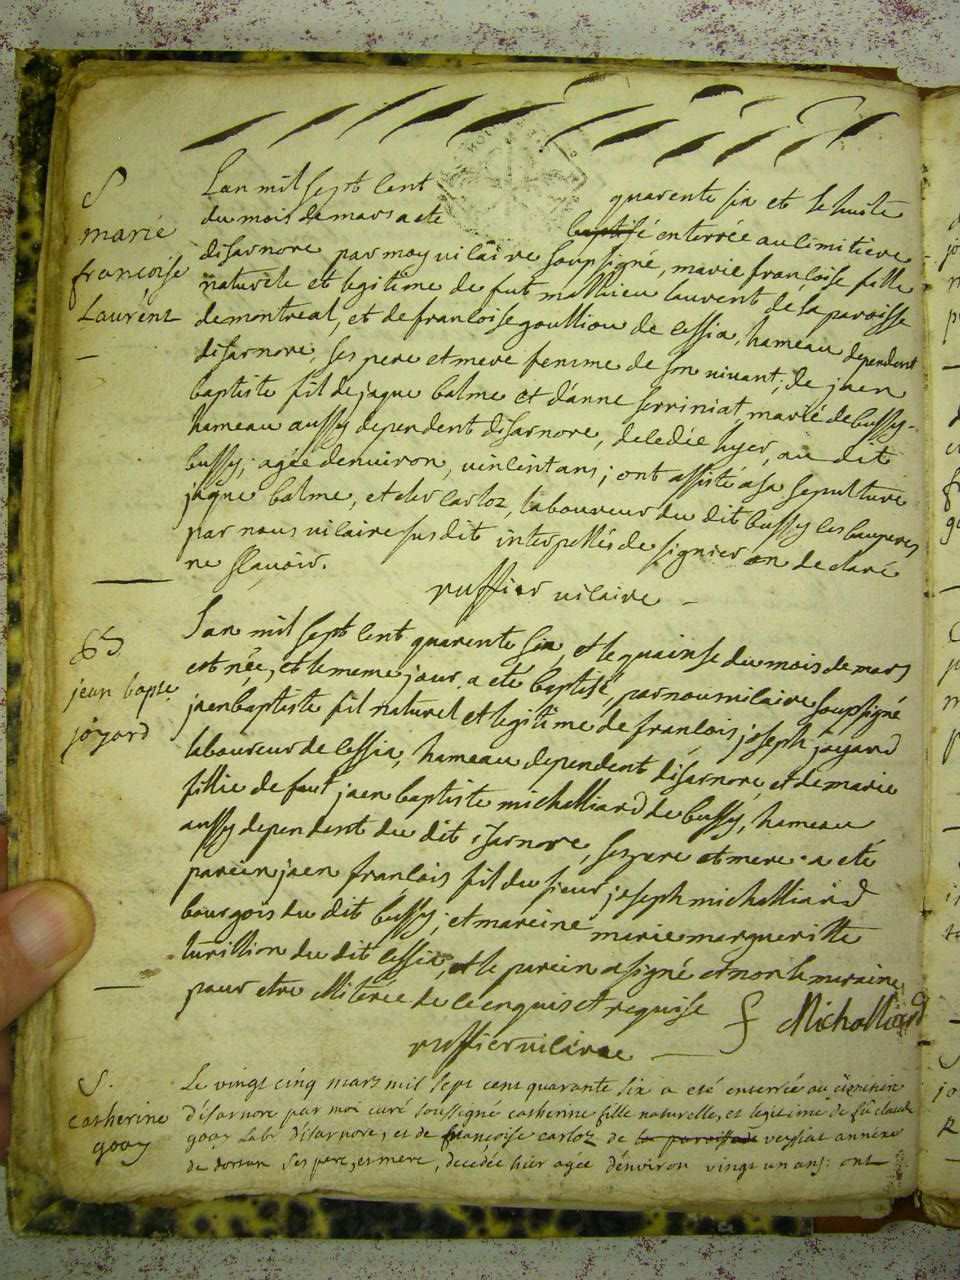 S
marie
françoise
Laurent
Lan mil sept cent quarente six et le huite
du mois de mars a ete baptisé enterrée au cimitiere
disarnore par moy vicaire soupsigné, marie françoise fille
naturele et legitime de fut mathieu laurent de la paroisse
de montreal, et de francoise goullion de cessia, hameau dependent
disarnore, ses pere et mere femme de son vivant, de jaen
baptiste fil de jaque balme et d'anne serriniat marié de bussy
hameau aussy dependent disarnore, decedée hyer, au dit
bussy, agée denviron, vincint ans; ont assisté a sa sepulture
jaque balme, et carloz, laboureur du dit bussy les
par nous vicaire susdit interpellés de signier on declaré
ne sçavoir.
ruffier vicaire
B
jean bapte
joyard
Lan mil sept cent quarente six, et le quainse du mois de mars
est née, et le meme jour a eté baptisé, par nous vicaire soupsigné
jaen baptiste fil naturel et legitime de francois joseph joyard
laboureur de cessia, hameau dependent disarnore, et de marie
fillie de fut jaen baptiste michalliard de bussy, hameau
aussy dependent du dit isarnore, ses pere et mere. a eté
parein jaen francois fil du sieur joseph michalliard
bourgois du dit bussy, et mareine marie margueritte
turillion du dit cessia, et le parein a signé et non le maraine
pour etre illiterée de ce enquis et requise
f Michalliard
ruffier vicaire
S.
catherine
goay
Le vingt cinq mars mil sept cent quarante six a eté enterrée au cimitiere
d'isarnore par moi curé soussigné catherine fille naturelle, et legitime de fû claude
goay labr d'isarnore, et de françoise carloz de la paroisse de veysiat annexe
de dorsan ses pere, et mere, decedée hier agée d'environ vingt un ans: ont